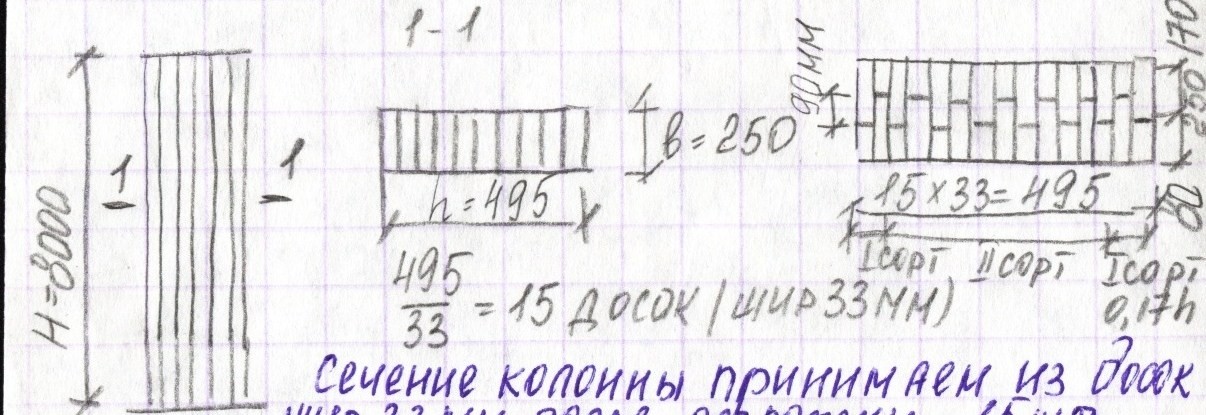 1-1
H=8000
1
1
b=250
h=495
495
33
= 15 досок (шир 33мм)
90мм
170
250
80
15×33=495
I сорт
II сорт
I сорт
0,17h
Сечение колонны принимаем из досок